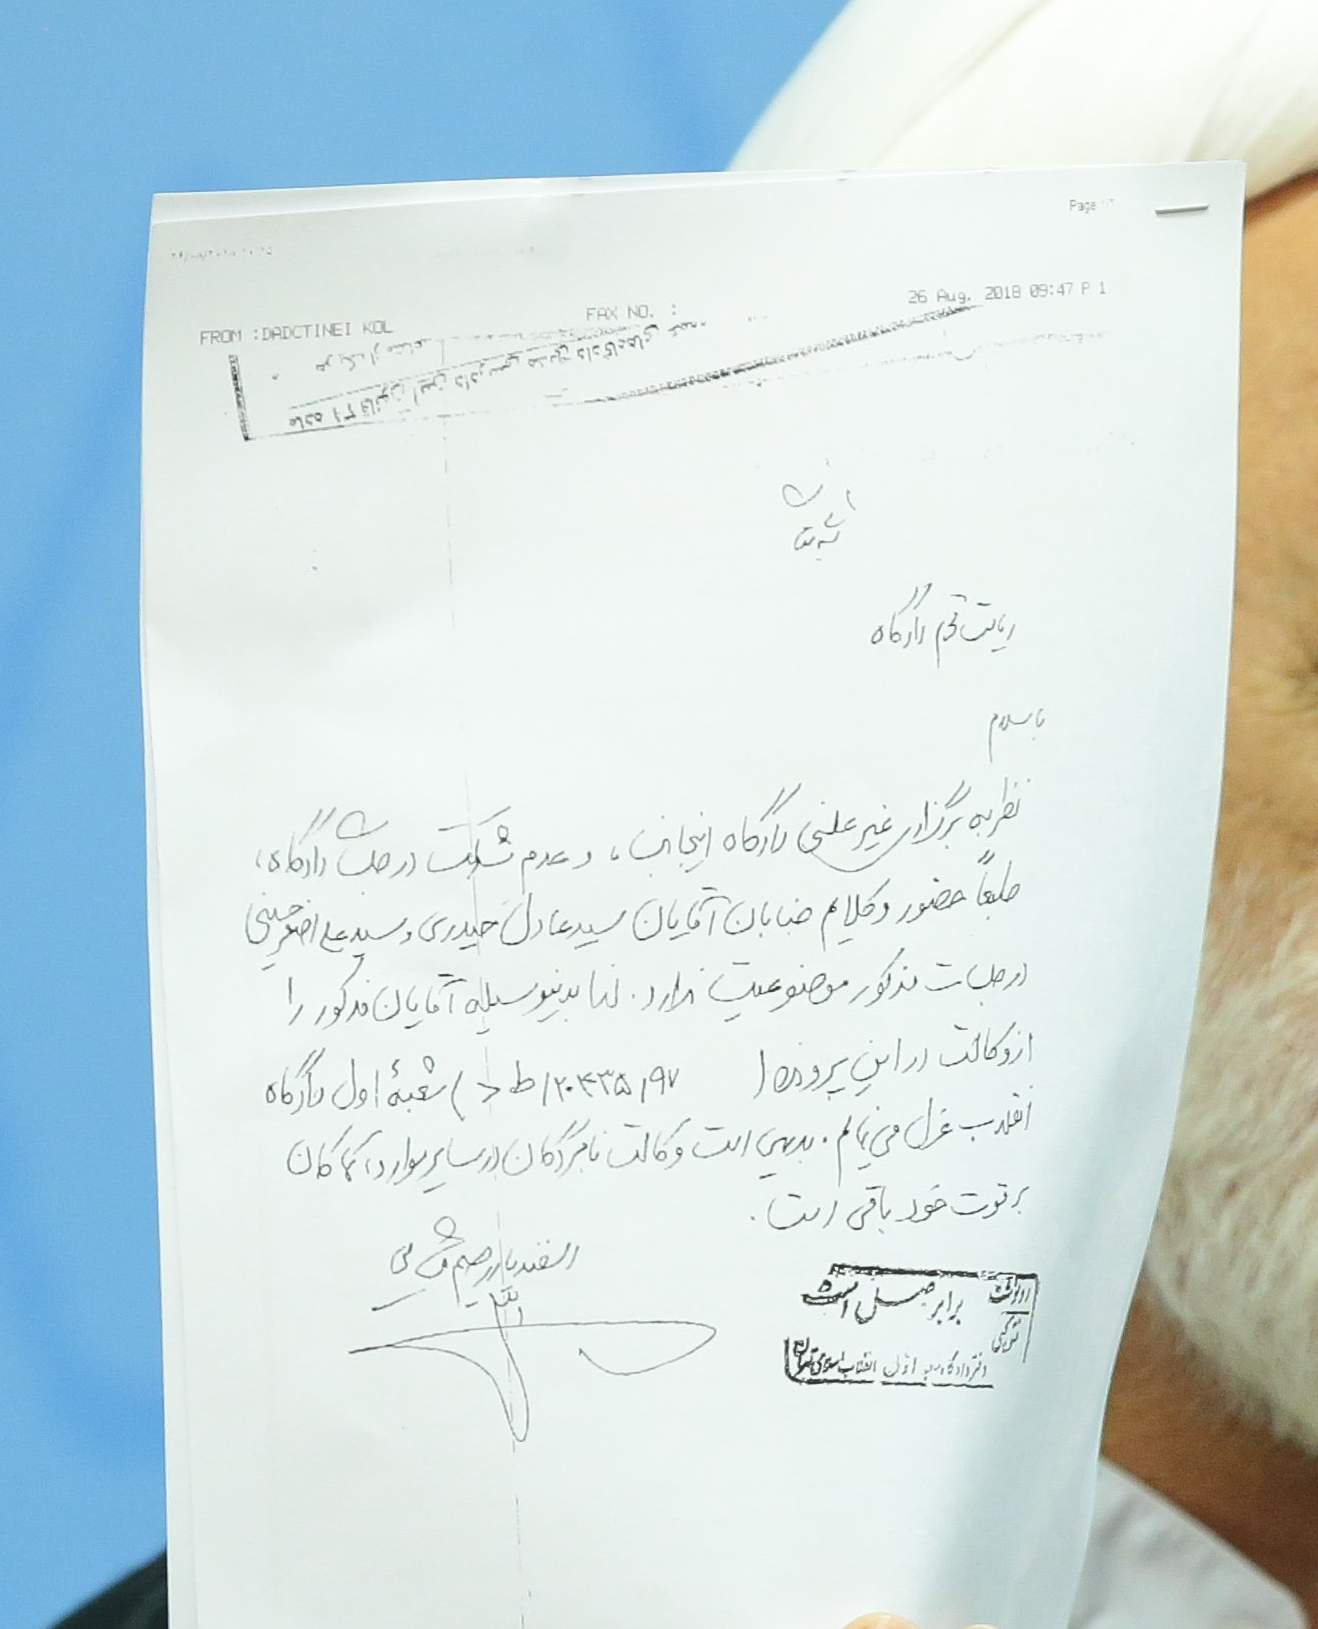 Page 1/1
26 Aug. 2018 09:47 P 1
FROM :DADCTINEI KOL FAX NO. :
ماده ۳۱ قانون آیین دادرسی مدنی دادگاههای عمومی
هر یک از
ریاست محترم دادگاه
با سلام
نظر به برگزاری غیر علنی دادگاه اینجانب، و عدم شرکت در جلسات دادگاه،
طبعاً حضور وکلایم جنابان آقایان سید عادل حیدری و سید علی اصغر حسینی
در جلسات مذکور موضوعیت ندارد. لذا بدینوسیله آقایان مذکور را
از وکالت در این پرونده (۲۰۴۳۵/۹۷/ط د) شعبهٔ اول دادگاه
انقلاب عزل می‌نمایم. بدیهی است وکالت نامبردگان در سایر موارد، کماکان
بر قوت خود باقی است.
اسفندیار رحیم مشایی
رونوشت برابر اصل است
دفتر دادگاه شعبه اول انقلاب اسلامی تهران